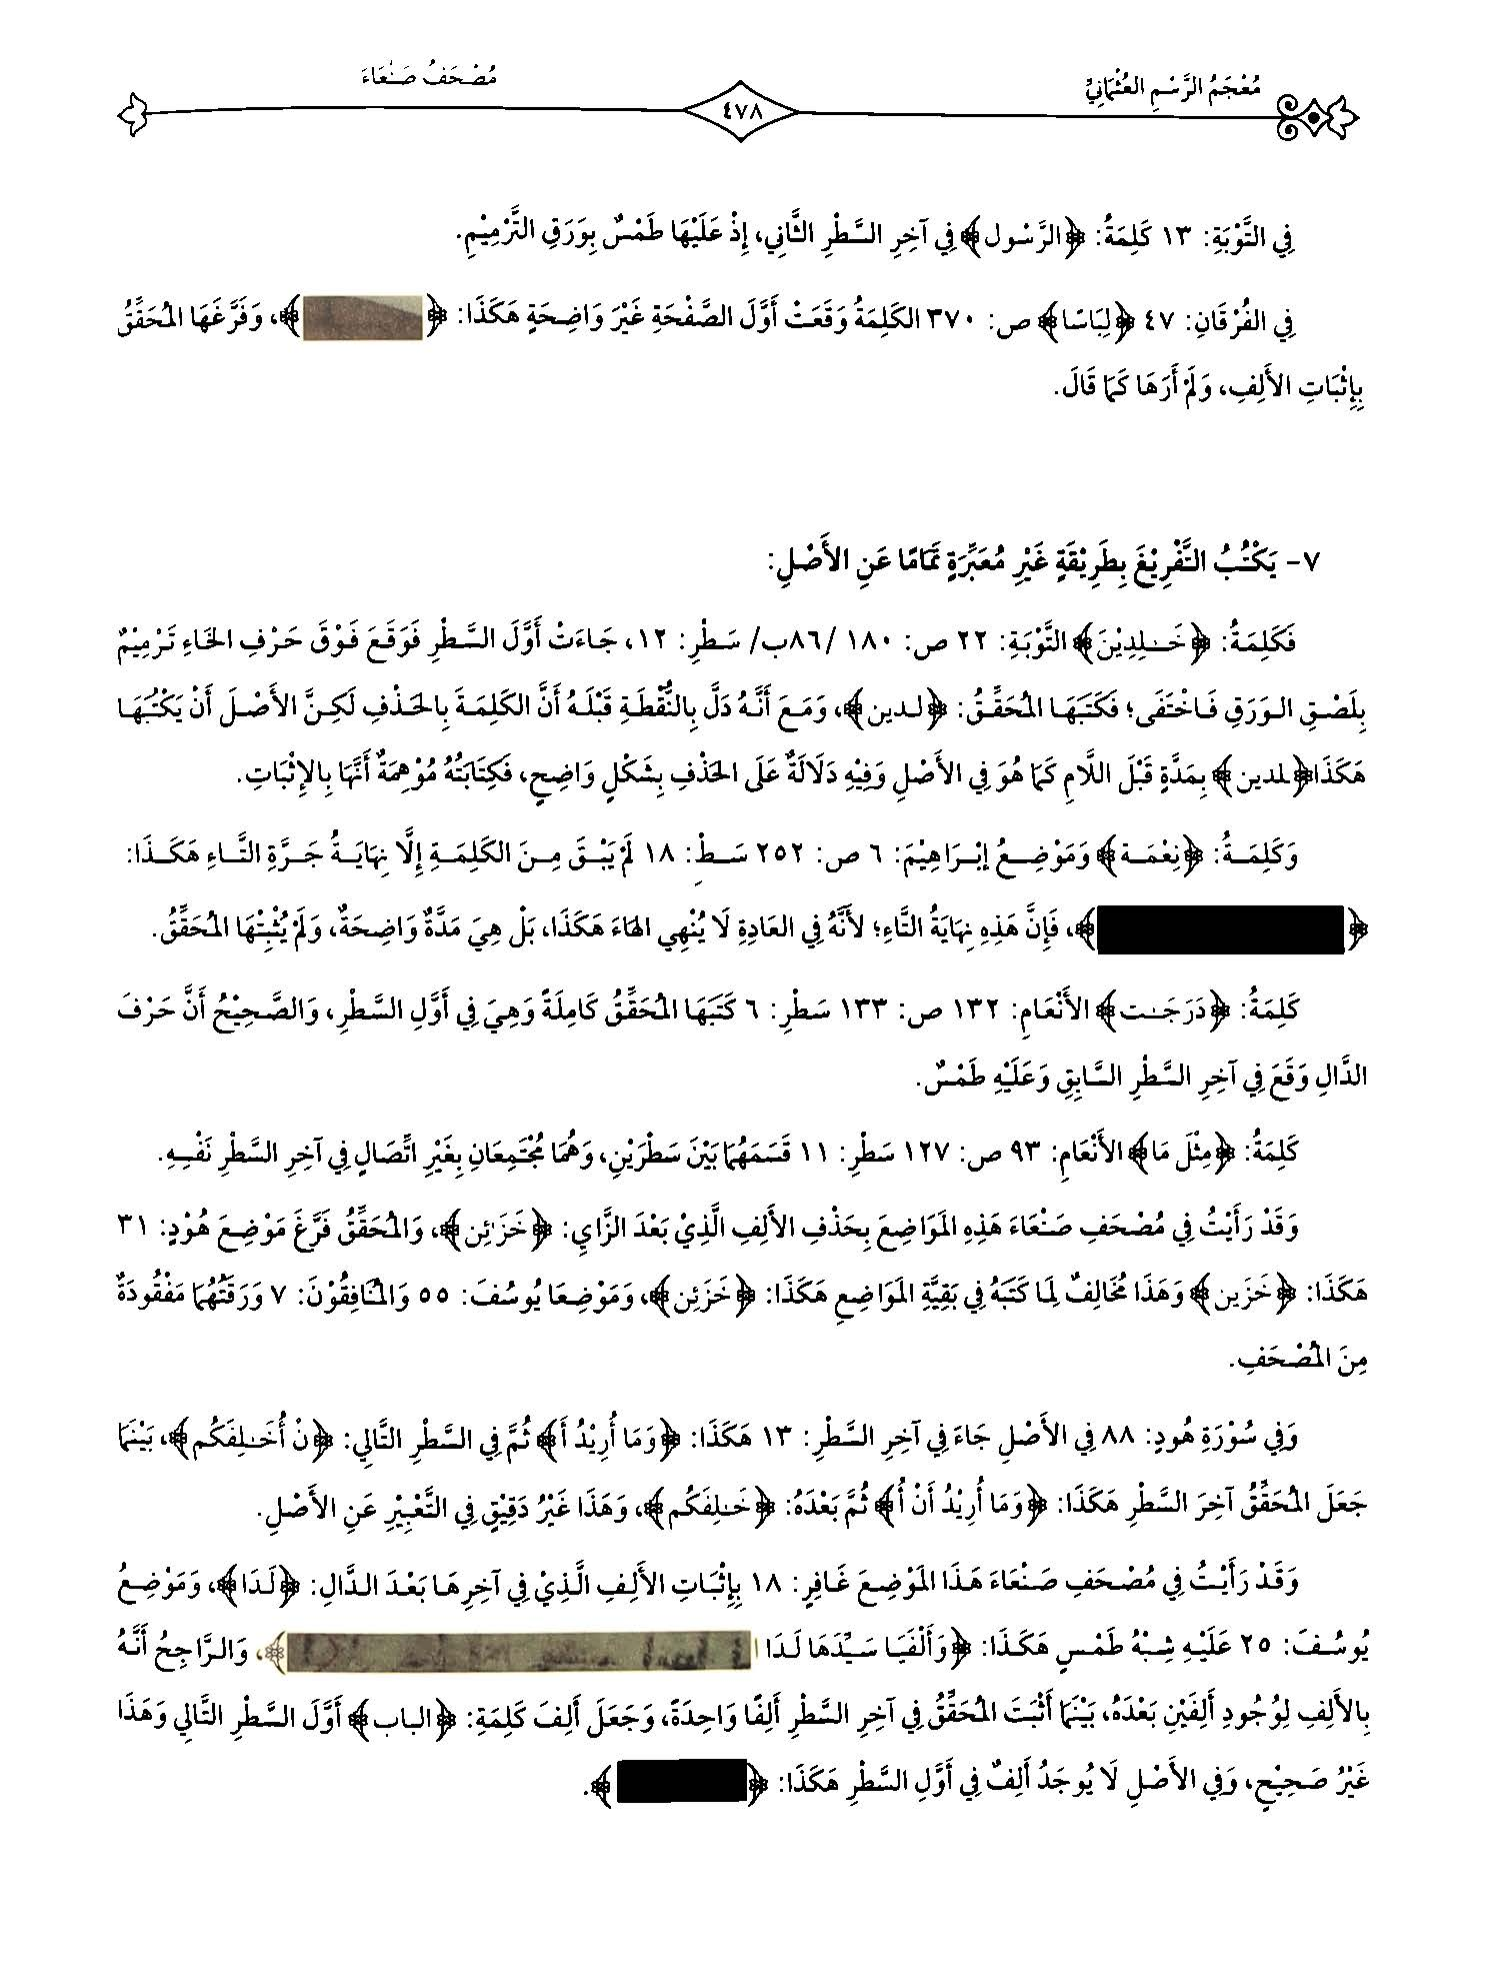 مُعْجَمُ الرَّسْمِ العُثْمَانِيِّ
٤٧٨
مُصْحَفُ صَنْعَاءَ
فِي التَّوْبَةِ: ١٣ كَلِمَةُ: ﴿الرَّسُول﴾ فِي آخِرِ السَّطْرِ الثَّانِي، إِذْ عَلَيْهَا طَمْسٌ بِوَرَقِ التَّرْمِيْمِ.
فِي الفُرْقَانِ: ٤٧ ﴿لِبَاسًا﴾ ص: ٣٧٠ الكَلِمَةُ وَقَعَتْ أَوَّلَ الصَّفْحَةِ غَيْرَ وَاضِحَةٍ هَكَذَا: ﴿ ﴾، وَفَرَّغَهَا المُحَقِّقُ
بِإِثْبَاتِ الأَلِفِ، وَلَمْ أَرَهَا كَمَا قَالَ.
٧- يَكْتُبُ التَّفْرِيْغَ بِطَرِيْقَةٍ غَيْرِ مُعَبِّرَةٍ تَمَامًا عَنِ الأَصْلِ:
فَكَلِمَةُ: ﴿خَـٰلِدِيْنَ﴾ التَّوْبَةِ: ٢٢ ص: ١٨٠ /٨٦ب/ سَطْرِ: ١٢، جَاءَتْ أَوَّلَ السَّطْرِ فَوَقَعَ فَوْقَ حَرْفِ الخَاءِ تَرْمِيْمٌ
بِلَصْقِ الوَرَقِ فَاخْتَفَى؛ فَكَتَبَهَا المُحَقِّقُ: ﴿لدين﴾، وَمَعَ أَنَّهُ دَلَّ بِالنُّقْطَةِ قَبْلَهُ أَنَّ الكَلِمَةَ بِالحَذْفِ لَكِنَّ الأَصْلَ أَنْ يَكْتُبَهَا
هَكَذَا ﴿ـلدين﴾ بِمَدَّةٍ قَبْلَ اللَّامِ كَمَا هُوَ فِي الأَصْلِ وَفِيْهِ دَلَالَةٌ عَلَى الحَذْفِ بِشَكْلٍ وَاضِحٍ، فَكِتَابَتُهُ مُوْهِمَةٌ أَنَّهَا بِالإِثْبَاتِ.
وَكَلِمَةُ: ﴿نِعْمَة﴾ وَمَوْضِعُ إِبْرَاهِيْمَ: ٦ ص: ٢٥٢ سَطْرِ: ١٨ لَمْ يَبْقَ مِنَ الكَلِمَةِ إِلَّا نِهَايَةُ جَرَّةِ التَّاءِ هَكَذَا:
﴿ ﴾، فَإِنَّ هَذِهِ نِهَايَةُ التَّاءِ؛ لأَنَّهُ فِي العَادِةِ لَا يُنْهِي الهَاءَ هَكَذَا، بَلْ هِيَ مَدَّةٌ وَاضِحَةٌ، وَلَمْ يُثْبِتْهَا المُحَقِّقُ.
كَلِمَةُ: ﴿دَرَجَـٰت﴾ الأَنْعَامِ: ١٣٢ ص: ١٣٣ سَطْرِ: ٦ كَتَبَهَا المُحَقِّقُ كَامِلَةً وَهِيَ فِي أَوَّلِ السَّطْرِ، وَالصَّحِيْحُ أَنَّ حَرْفَ
الدَّالِ وَقَعَ فِي آخِرِ السَّطْرِ السَّابِقِ وَعَلَيْهِ طَمْسٌ.
كَلِمَةُ: ﴿مِثْلَ مَا﴾ الأَنْعَامِ: ٩٣ ص: ١٢٧ سَطْرِ: ١١ قَسَمَهُمَا بَيْنَ سَطْرَيْنِ، وَهُمَا مُجْتَمِعَانِ بِغَيْرِ اتِّصَالٍ فِي آخِرِ السَّطْرِ نَفْسِهِ.
وَقَدْ رَأَيْتُ فِي مُصْحَفِ صَنْعَاءَ هَذِهِ المَوَاضِعَ بِحَذْفِ الأَلِفِ الَّذِيْ بَعْدَ الزَّايِ: ﴿خَزَٰئِن﴾، وَالمُحَقِّقُ فَرَّغَ مَوْضِعَ هُوْدٍ: ٣١
هَكَذَا: ﴿خَزَين﴾ وَهَذَا مُخَالِفٌ لِمَا كَتَبَهُ فِي بَقِيَّةِ المَوَاضِعِ هَكَذَا: ﴿خَزَئِن﴾، وَمَوْضِعَا يُوسُفَ: ٥٥ وَالمُنَافِقُوْنَ: ٧ وَرَقَتُهُمَا مَفْقُودَةٌ
مِنَ المُصْحَفِ.
وَفِي سُوْرَةِ هُودٍ: ٨٨ فِي الأَصْلِ جَاءَ فِي آخِرِ السَّطْرِ: ١٣ هَكَذَا: ﴿وَمَا أُرِيْدُ أَ﴾ ثُمَّ فِي السَّطْرِ التَّالِي: ﴿نْ أُخَـٰلِفَكُم﴾، بَيْنَمَا
جَعَلَ المُحَقِّقُ آخِرَ السَّطْرِ هَكَذَا: ﴿وَمَا أُرِيْدُ أَنْ أُ﴾ ثُمَّ بَعْدَهُ: ﴿خَـٰلِفَكُم﴾، وَهَذَا غَيْرُ دَقِيْقٍ فِي التَّعْبِيْرِ عَنِ الأَصْلِ.
وَقَدْ رَأَيْتُ فِي مُصْحَفِ صَنْعَاءَ هَذَا المَوْضِعَ غَافِرٍ: ١٨ بِإِثْبَاتِ الأَلِفِ الَّذِيْ فِي آخِرِهَا بَعْدَ الدَّالِ: ﴿لَدَا﴾، وَمَوْضِعُ
يُوسُفَ: ٢٥ عَلَيْهِ شِبْهُ طَمْسٍ هَكَذَا: ﴿وَأَلْفَيَا سَيِّدَهَا لَدَا ﴾، وَالرَّاجِحُ أَنَّهُ
بِالأَلِفِ لِوُجُودِ أَلِفَيْنِ بَعْدَهُ، بَيْنَمَا أَثْبَتَ المُحَقِّقُ فِي آخِرِ السَّطْرِ أَلِفًا وَاحِدَةً، وَجَعَلَ أَلِفَ كَلِمَةِ: ﴿الباب﴾ أَوَّلَ السَّطْرِ التَّالِي وَهَذَا
غَيْرُ صَحِيْحٍ، وَفِي الأَصْلِ لَا يُوجَدُ أَلِفٌ فِي أَوَّلِ السَّطْرِ هَكَذَا: ﴿ ﴾.